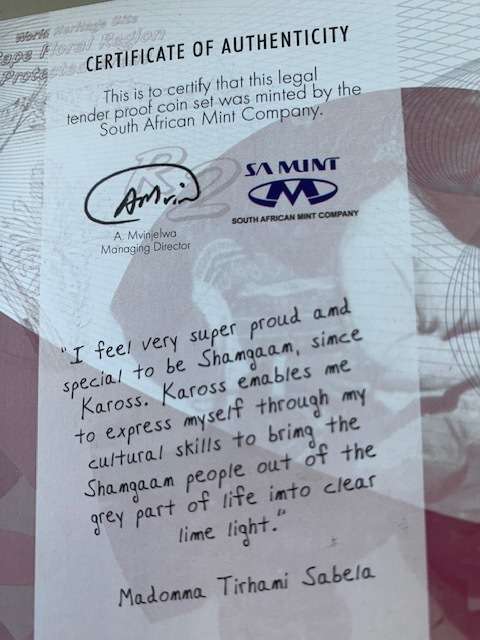 World Heritage Site
Cape Floral Region
CERTIFICATE OF AUTHENTICITY
This is to certify that this legal
tender proof coin set was minted by the
South African Mint Company.
R2
AMvin
SA MINT
SOUTH AFRICAN MINT COMPANY
A. Mvinjelwa
Managing Director
"I feel very super proud and
special to be Shamgaam, since
Kaross. Kaross emables me
to express myself through my
cultural skills to bring the
Shamgaam people out of the
grey part of life imto clear
lime light."
Madomma Tirhami Sabela